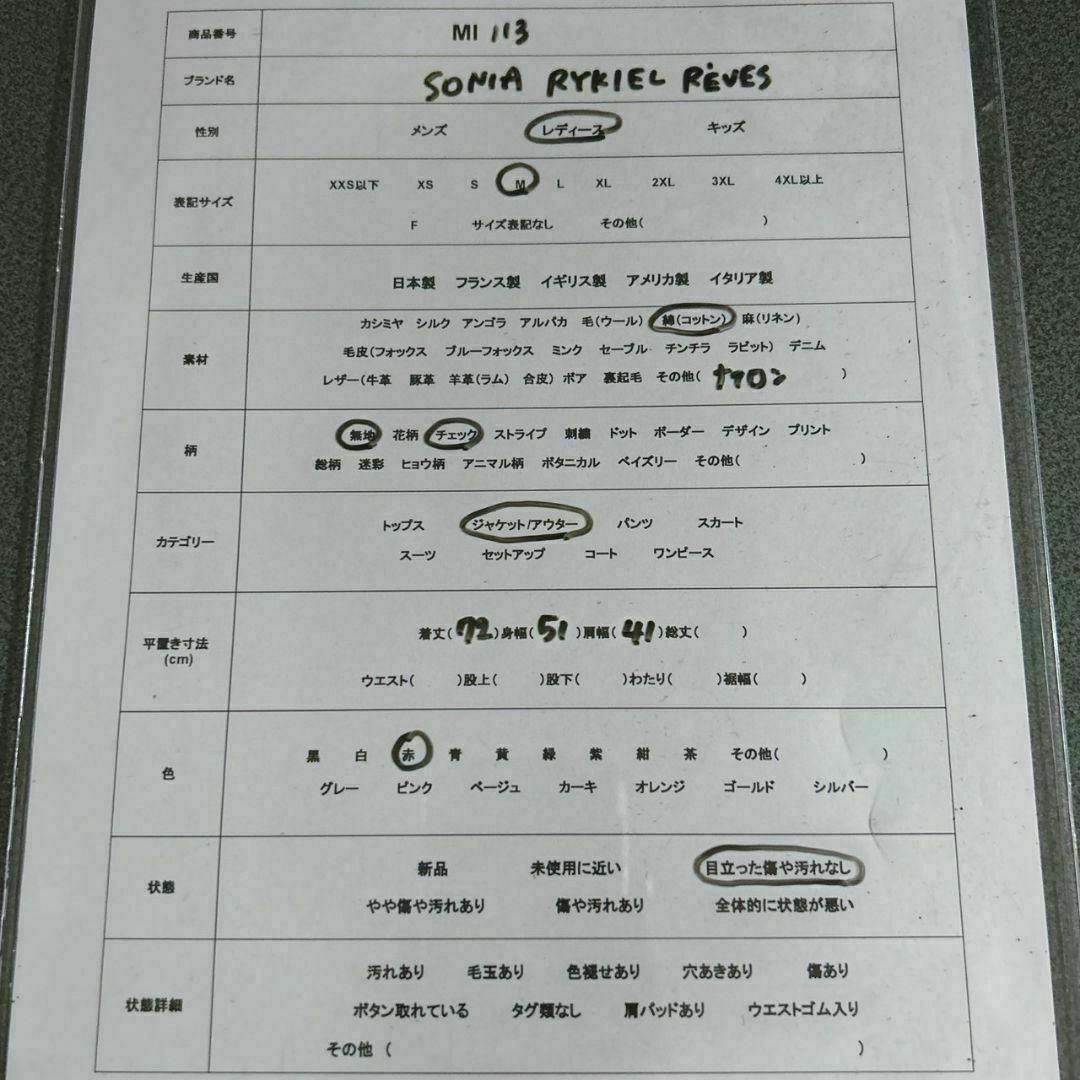 商品番号 MI 113
ブランド名 SONIA RYKIEL RÈVES
性別 メンズ レディース キッズ
表記サイズ
XXS以下 XS S M L XL 2XL 3XL 4XL以上
F サイズ表記なし その他( )
生産国 日本製 フランス製 イギリス製 アメリカ製 イタリア製
素材
カシミヤ シルク アンゴラ アルパカ 毛(ウール) 綿(コットン) 麻(リネン)
毛皮(フォックス ブルーフォックス ミンク セーブル チンチラ ラビット) デニム
レザー(牛革 豚革 羊革(ラム) 合皮) ボア 裏起毛 その他( ナイロン )
柄
無地 花柄 チェック ストライプ 刺繍 ドット ボーダー デザイン プリント
総柄 迷彩 ヒョウ柄 アニマル柄 ボタニカル ペイズリー その他( )
カテゴリー
トップス ジャケット/アウター パンツ スカート
スーツ セットアップ コート ワンピース
平置き寸法
(cm)
着丈( 72 )身幅( 51 )肩幅( 41 )総丈( )
ウエスト( )股上( )股下( )わたり( )裾幅( )
色
黒 白 赤 青 黄 緑 紫 紺 茶 その他( )
グレー ピンク ベージュ カーキ オレンジ ゴールド シルバー
状態
新品 未使用に近い 目立った傷や汚れなし
やや傷や汚れあり 傷や汚れあり 全体的に状態が悪い
状態詳細
汚れあり 毛玉あり 色褪せあり 穴あきあり 傷あり
ボタン取れている タグ類なし 肩パッドあり ウエストゴム入り
その他 ( )